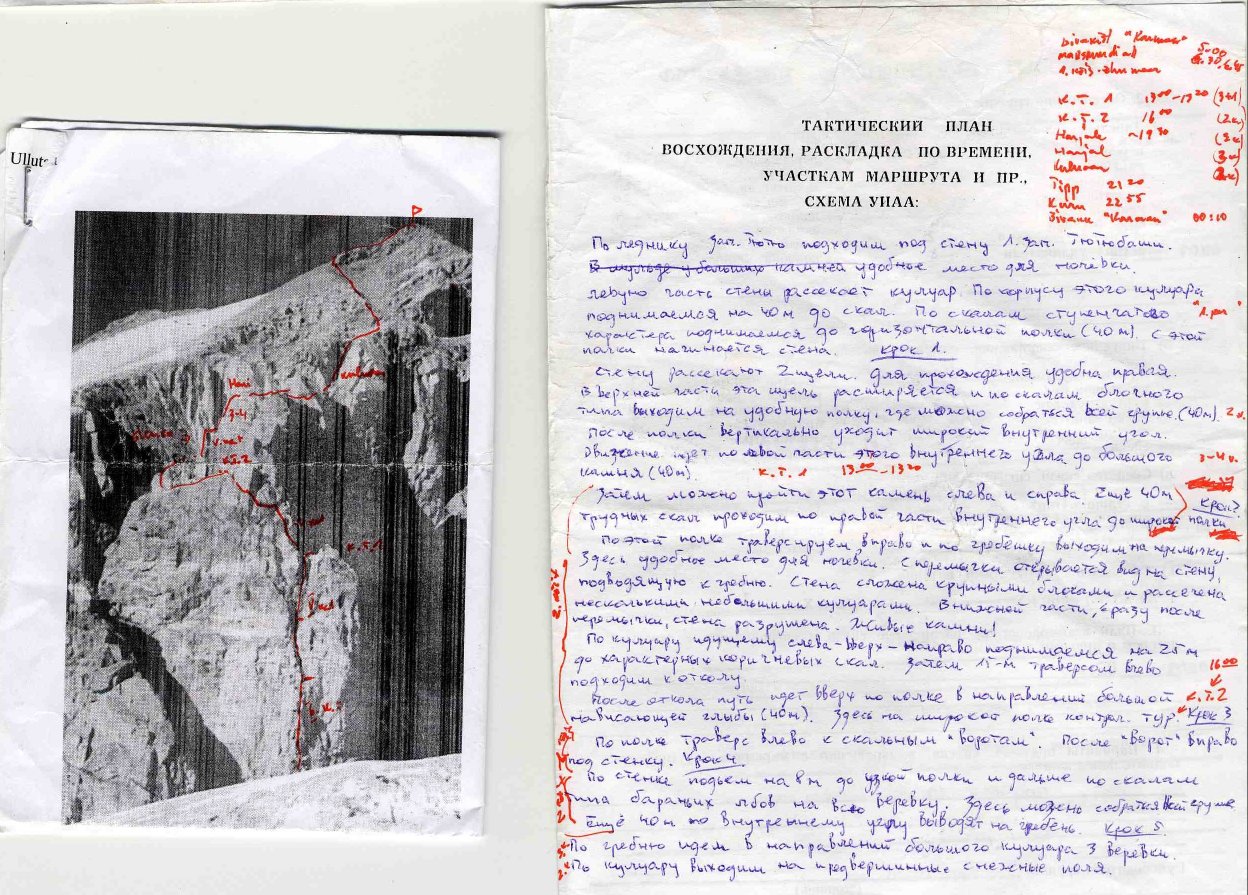 Ulluta
P
kuluaar
Hari
3-4
V.nat
K.T.2
K.T.1
bivakilt
5-00
К.Т. 1 13⁰⁰-13²⁰ (3+1)
К.Т. 2 16⁰⁰
Harjale ~19³⁰
Harjal
Kuluaar
Tipp 21²⁰
Kuru 22⁵⁵
Bivakk 00:10
ТАКТИЧЕСКИЙ ПЛАН
ВОСХОЖДЕНИЯ, РАСКЛАДКА ПО ВРЕМЕНИ,
УЧАСТКАМ МАРШРУТА И ПР.,
СХЕМА УИАА:
По леднику Зап. Тютю подходим под стену 1. зап. Тютюбаши.
В мульде у больших камней удобное место для ночёвки.
Левую часть стены рассекает кулуар. По корпусу этого кулуара
поднимаемся на 40м до скал. По скалам ступенчатого
характера поднимаемся до горизонтальной полки (40м). С этой
полки начинается стена. Крок 1.
Стену рассекают 2 щели. Для прохождения удобна правая.
В верхней части эта щель расширяется и по скалам блочного
типа выходим на удобную полку, где можно собраться всей группе. (40м).
После полки вертикально уходит широкий внутренний угол.
Движение идет по левой части этого внутреннего угла до большого
камня (40м). К.Т. 1 13⁰⁰-13²⁰
3-4 ч.
Затем можно пройти этот камень слева и справа. Ещё 40м
Крок 2
трудных скал проходим по правой части внутреннего угла до широкой полки
По этой полке траверсируем вправо и по гребешку выходим на перемычку.
Здесь удобное место для ночевки. С перемычки открывается вид на стену,
подводящую к гребню. Стена сложена крупными блоками и рассечена
несколькими небольшими кулуарами. В нижней части, сразу после
перемычки, стена разрушена. Живые камни!
По кулуару идущему слева-вверх-направо поднимаемся на 25м
до характерных коричневых скал. Затем 15-м траверсом влево 16⁰⁰
подходим к отколу.
После откола путь идет вверх по полке в направлений большой К.Т.2
нависающей глыбы (40м). Здесь на широкой полке контрл. тур. Крок 3
По полке траверс влево к скальным "воротам". После "ворот" вправо
под стенку. Крок 4.
По стенке подъем на 8м до узкой полки и дальше по скалам
типа бараньих лбов на всю веревку. Здесь можно собраться всей группе
Ещё 40м по внутреннему углу выводят на гребень. Крок 5.
По гребню идем в направлений большого кулуара 3 веревки.
По кулуару выходим на предвершинные снежные поля.